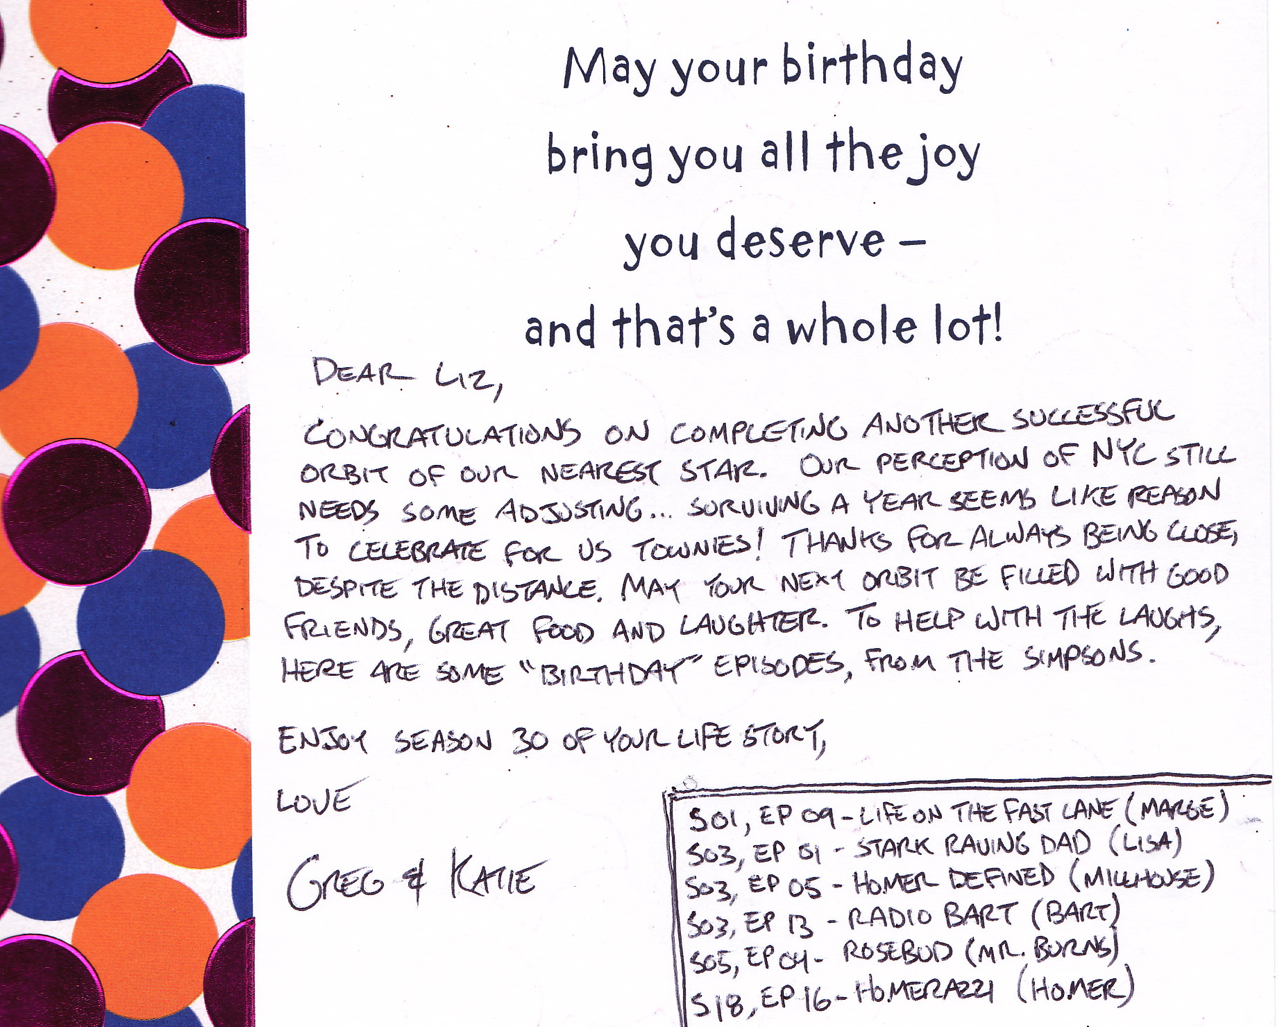 May your birthday
bring you all the joy
you deserve –
and that's a whole lot!
DEAR LIZ,
CONGRATULATIONS ON COMPLETING ANOTHER SUCCESSFUL
ORBIT OF OUR NEAREST STAR. OUR PERCEPTION OF NYC STILL
NEEDS SOME ADJUSTING... SURVIVING A YEAR SEEMS LIKE REASON
TO CELEBRATE FOR US TOWNIES! THANKS FOR ALWAYS BEING CLOSE,
DESPITE THE DISTANCE. MAY YOUR NEXT ORBIT BE FILLED WITH GOOD
FRIENDS, GREAT FOOD AND LAUGHTER. TO HELP WITH THE LAUGHS,
HERE ARE SOME "BIRTHDAY" EPISODES, FROM THE SIMPSONS.
ENJOY SEASON 30 OF YOUR LIFE STORY,
LOVE
GREG & KATIE
S01, EP 09 - LIFE ON THE FAST LANE (MARGE)
S03, EP 01 - STARK RAVING DAD (LISA)
S03, EP 05 - HOMER DEFINED (MILLHOUSE)
S03, EP 13 - RADIO BART (BART)
S05, EP 04 - ROSEBUD (MR. BURNS)
S18, EP 16 - HOMERAZZI (HOMER)